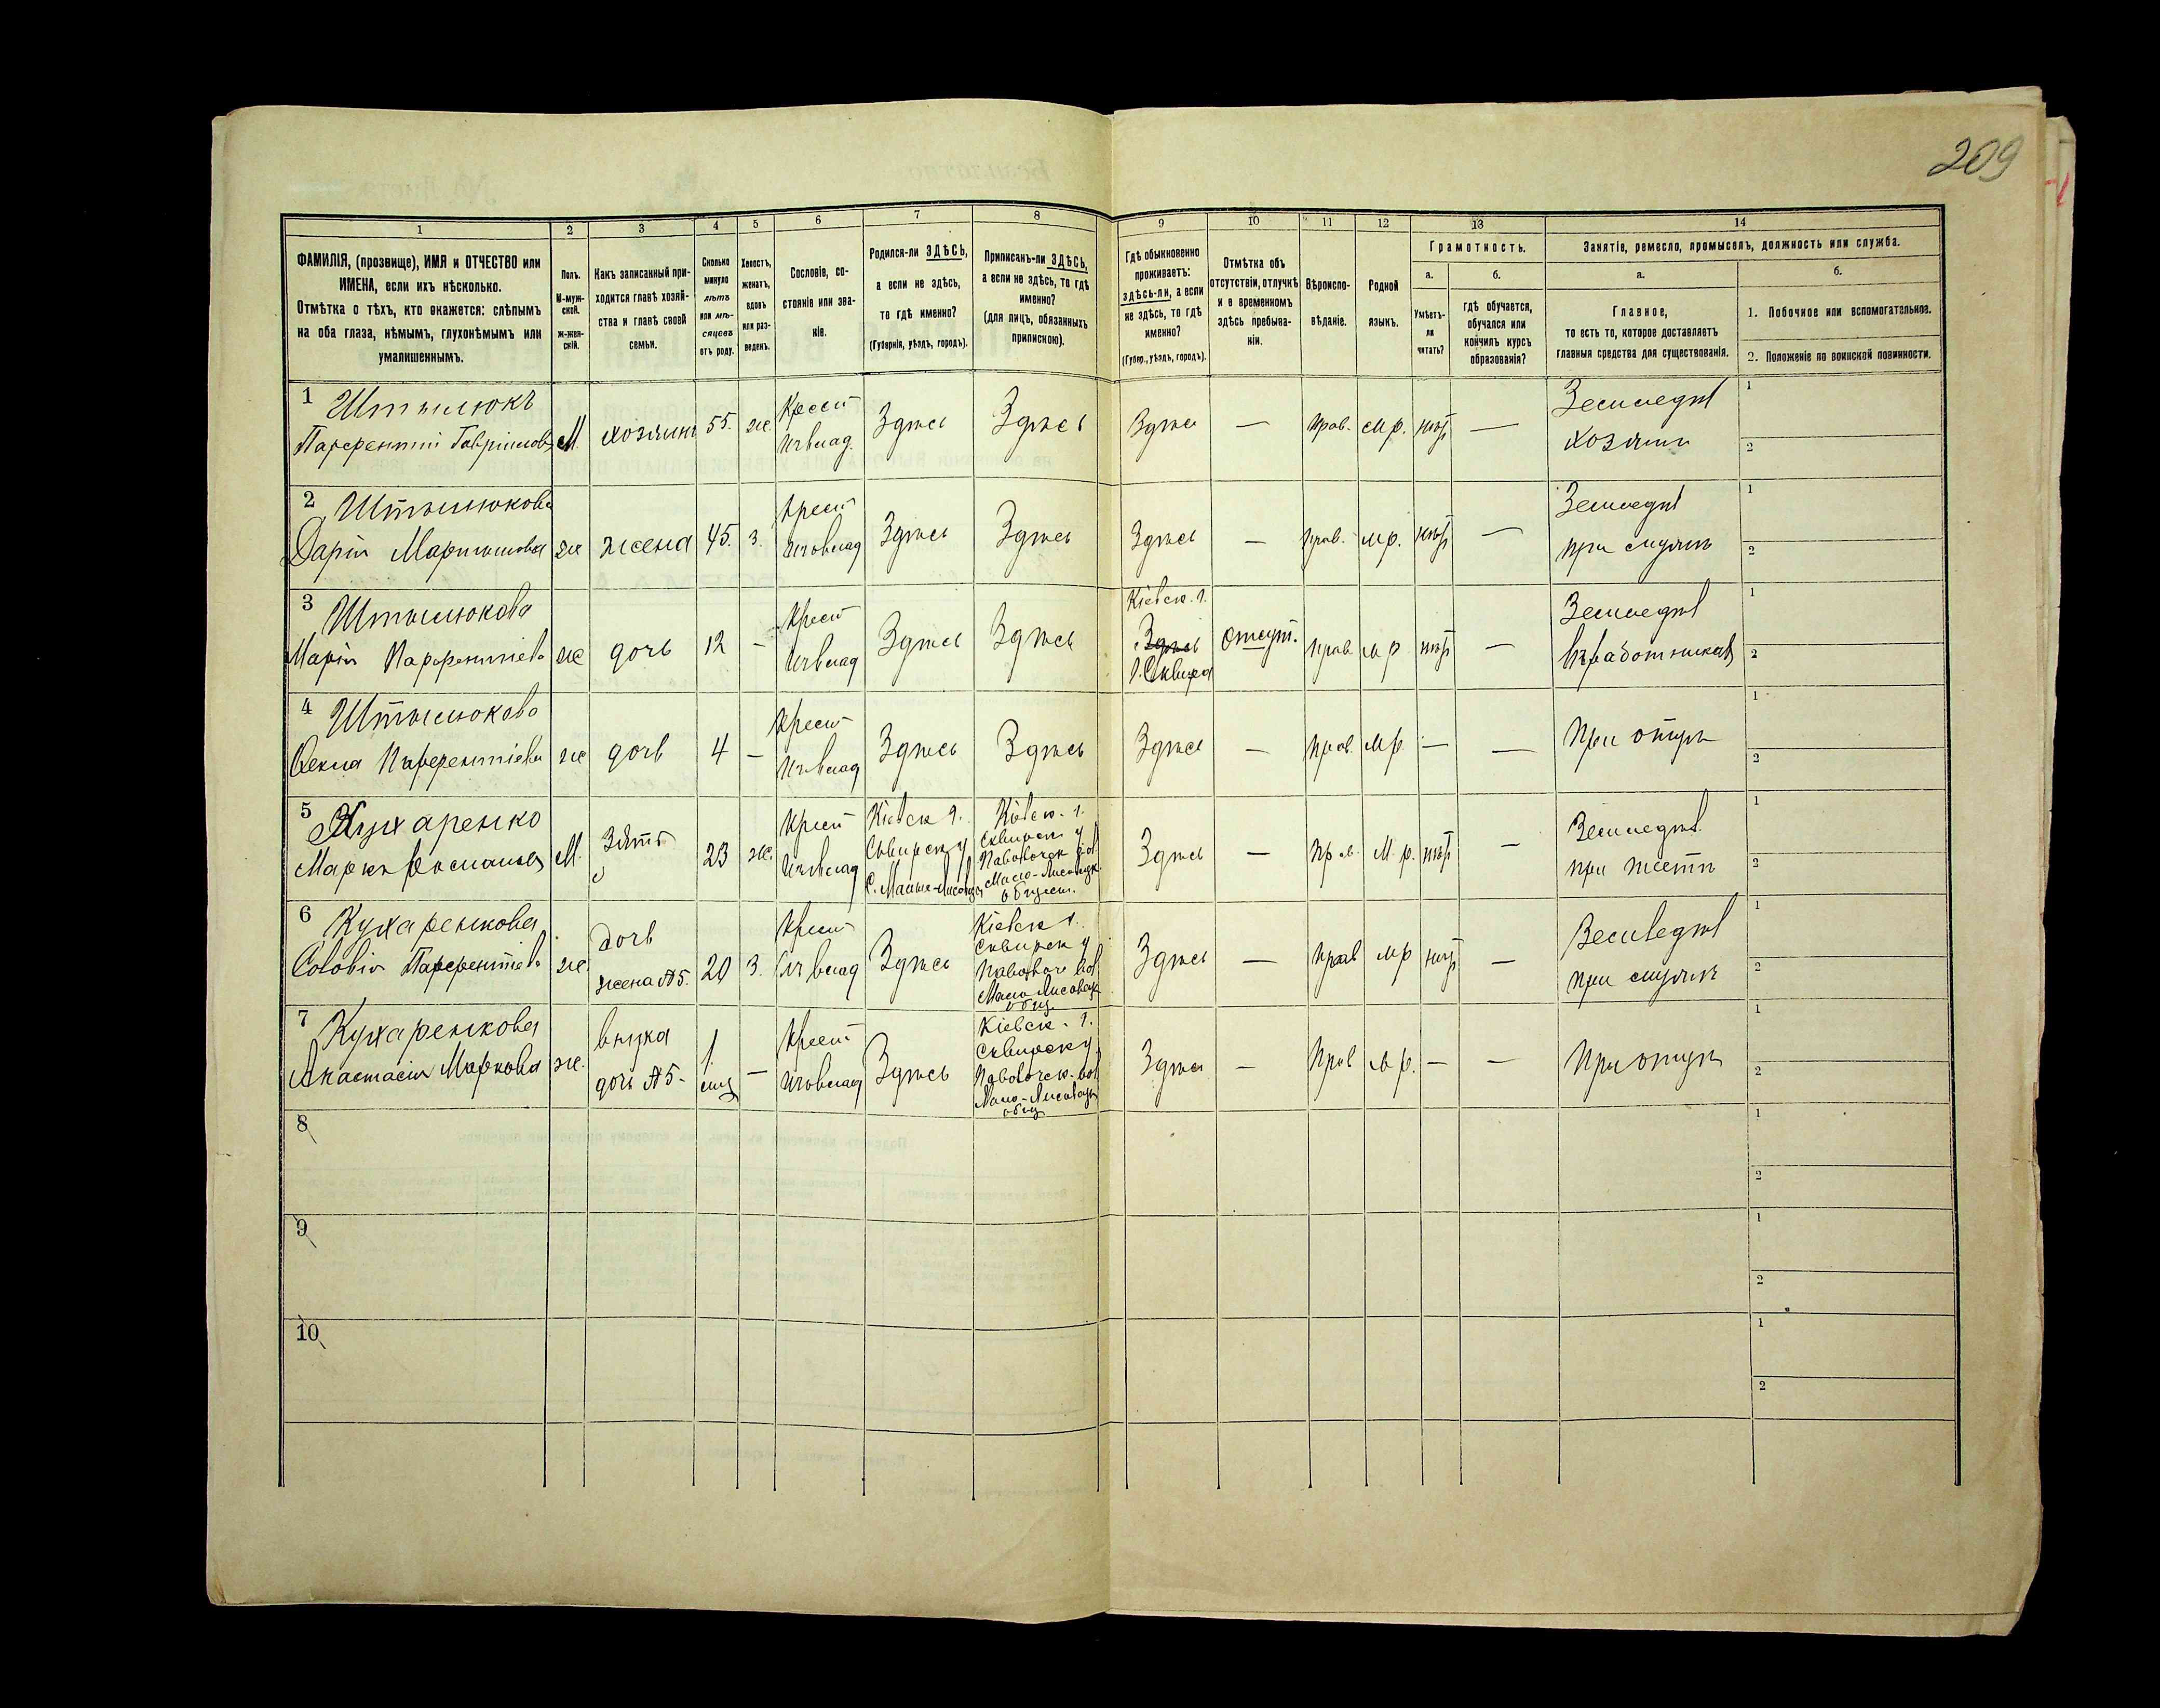 209
1 2 3 4 5 6 7 8 9 10 11 12 13 14
ФАМИЛІЯ, (прозвище), ИМЯ и ОТЧЕСТВО или
ИМЕНА, если ихъ нѣсколько.
Отмѣтка о тѣхъ, кто окажется: слѣпымъ
на оба глаза, нѣмымъ, глухонѣмымъ или
умалишеннымъ.
Полъ.
М-муж-
ской.
ж-жен-
скій.
Какъ записанный при-
ходится главѣ хозяй-
ства и главѣ своей
семьи.
Сколько
минуло
лѣтъ
или мѣ-
сяцевъ
отъ роду.
Холостъ,
женатъ,
вдовъ
или раз-
веденъ.
Сословіе, со-
стояніе или зва-
ніе.
Родился-ли ЗДѢСЬ,
а если не здѣсь,
то гдѣ именно?
(Губернія, уѣздъ, городъ).
Приписанъ-ли ЗДѢСЬ,
а если не здѣсь, то гдѣ
именно?
(для лицъ, обязанныхъ
припискою).
Гдѣ обыкновенно
проживаетъ:
здѣсь-ли, а если
не здѣсь, то гдѣ
именно?
(Губер., уѣздъ, городъ).
Отмѣтка объ
отсутствіи, отлучкѣ
и о временномъ
здѣсь пребыва-
ніи.
Вѣроиспо-
вѣданіе.
Родной
языкъ.
Грамотность.
а.
Умѣетъ-
ли
читать?
б.
гдѣ обучается,
обучался или
кончилъ курсъ
образованія?
Занятіе, ремесло, промыселъ, должность или служба.
а.
Главное,
то есть то, которое доставляетъ
главныя средства для существованія.
б.
1. Побочное или вспомогательное.
2. Положеніе по воинской повинности.
1 Штылюкъ
Парфентій Гавріиловъ М. хозяинъ 55. ж. Крест Изъвлад. Здѣсь Здѣсь Здѣсь — Прав. м р. нѣт — Земледѣл хозяин
1
2
2 Штылюкова
Дарія Мартынова ж жена 45. з. Крест Изъвлад Здѣсь Здѣсь Здѣсь — Прав. м р. нѣт — Земледѣл при мужѣ
1
2
3 Штылюкова
Марія Парфентіева ж дочь 12 — Крест Изъвлад Здѣсь Здѣсь Кіевск. г. Здѣсь г. Сквира Отсут. Прав. м р нѣт — Земледѣл
1
2
4 Штылюкова
Ѳекла Парфентіева ж дочь 4 — Крест Изъвлад Здѣсь Здѣсь Здѣсь — Прав. м р. — — При отцѣ
1
2
5 Кухаренко
Марко Романовъ М. Зять 23 ж. Крест Изъвлад
Кіевск г.
Сквирск у
С. Малыя-Лисовцы
Кіевск. г.
Сквирск у
Паволоцк вол
Мало-Лисовецк
общест.
Здѣсь — Прав. м. р. нѣт — Земледѣл. при тестѣ
1
2
6 Кухаренкова
Софія Парфентіева ж. дочь жена №5. 20 з. Крест Изъвлад Здѣсь
Кіевск г.
Сквирск у
Паволоч вол
Мало-Лисовецк
общ.
Здѣсь — Прав м р нѣт — Земледѣл при мужѣ
1
2
7 Кухаренкова
Анастасія Маркова ж. внука дочь №5 1. мѣс — Крест Изъвлад Здѣсь
Кіевск. г.
Сквирск у.
Паволочск. вол
Мало-Лисовецк
общ
Здѣсь — Прав м р. — — При отцѣ
1
2
8
1
2
9
1
2
10
1
2